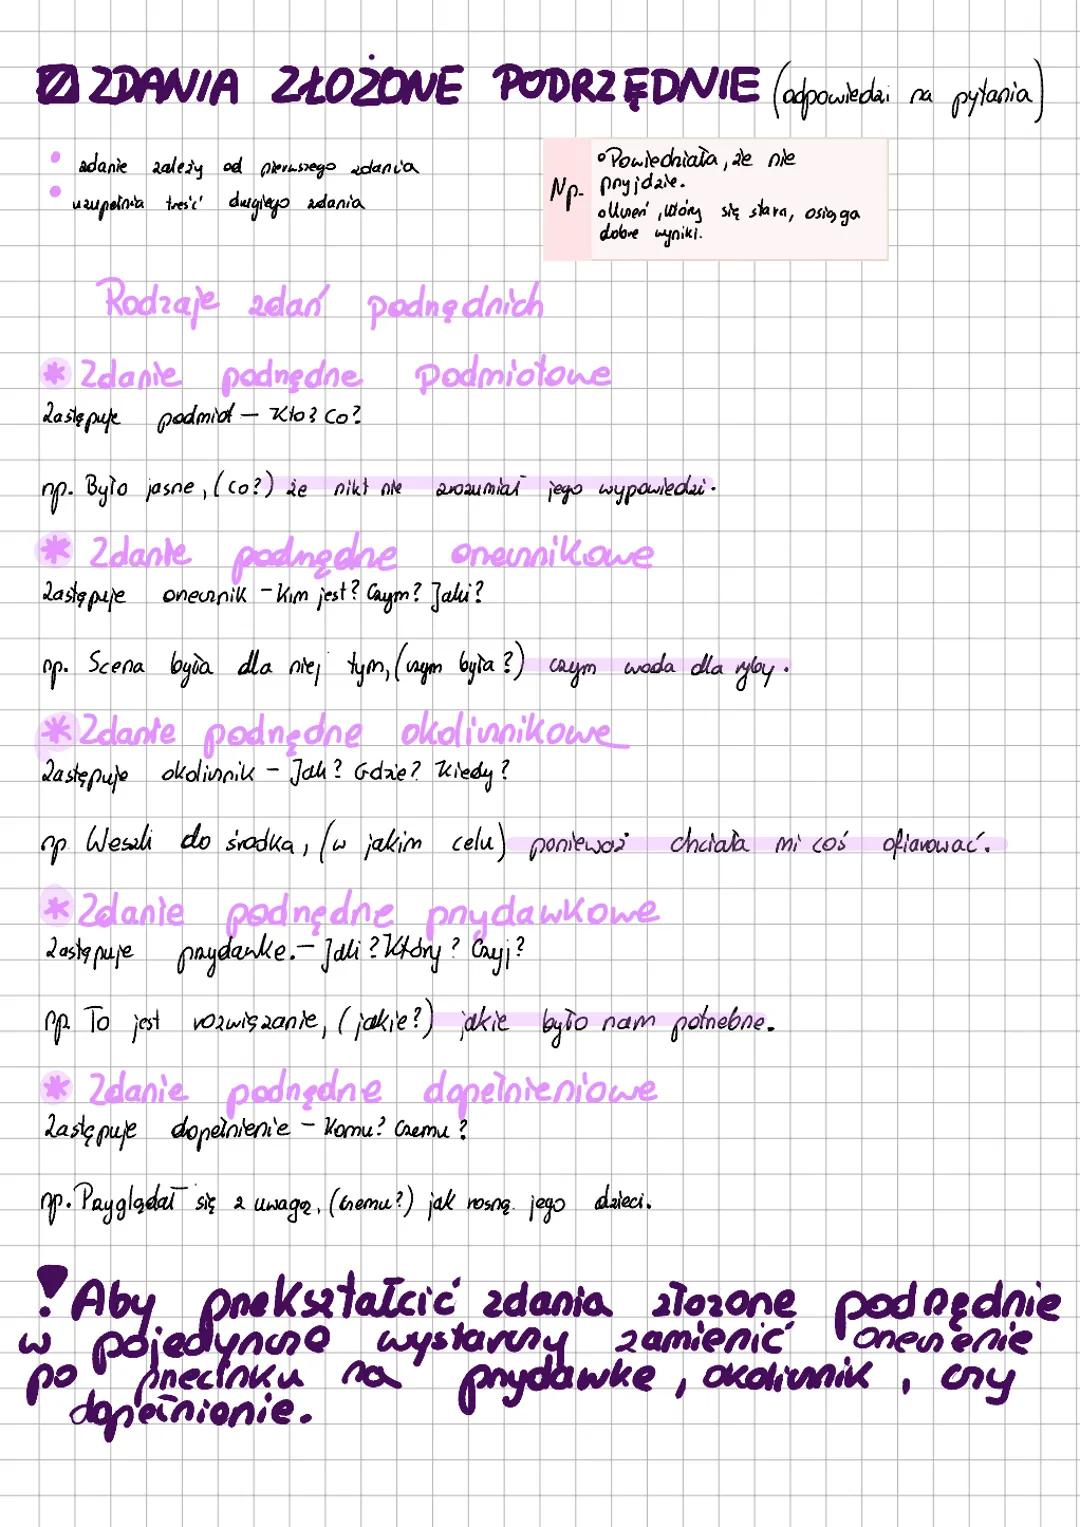 ZDANIA ZŁOŻONE PODRZĘDNIE (odpowiedzi na pytania)
• zdanie zależy od pierwszego zdania
• uzupełnia treść drugiego zdania
Np.
• Powiedziała, że nie
przyjdzie.
• Uczeń, który się stara, osiąga
dobre wyniki.
Rodzaje zdań podrzędnich
* Zdanie podrzędne podmiotowe
Zastępuje podmiot – Kto? Co?
np. Było jasne, (co?) że nikt nie zrozumiał jego wypowiedzi.
* Zdanie podrzędne orzecznikowe
Zastępuje orzecznik – Kim jest? Czym? Jaki?
np. Scena była dla niej tym, (czym była?) czym woda dla ryby.
* Zdanie podrzędne okolicznikowe
Zastępuje okolicznik – Jak? Gdzie? Kiedy?
np Weszli do środka, (w jakim celu) ponieważ chciała mi coś ofiarować.
* Zdanie podrzędne przydawkowe
Zastępuje przydawke. – Jaki? Który? Czyj?
np. To jest rozwiązanie, (jakie?) jakie było nam potrzebne.
* Zdanie podrzędne dopełnieniowe
Zastępuje dopełnienie – Komu? Czemu?
np. Przyglądał się z uwagą, (czemu?) jak rosną jego dzieci.
! Aby przekształcić zdania złozone podrzędnie
w pojedyncze wystarczy zamienić orzeczenie
po przecinku na przydawke, okolicznik, czy
dopełnionie.